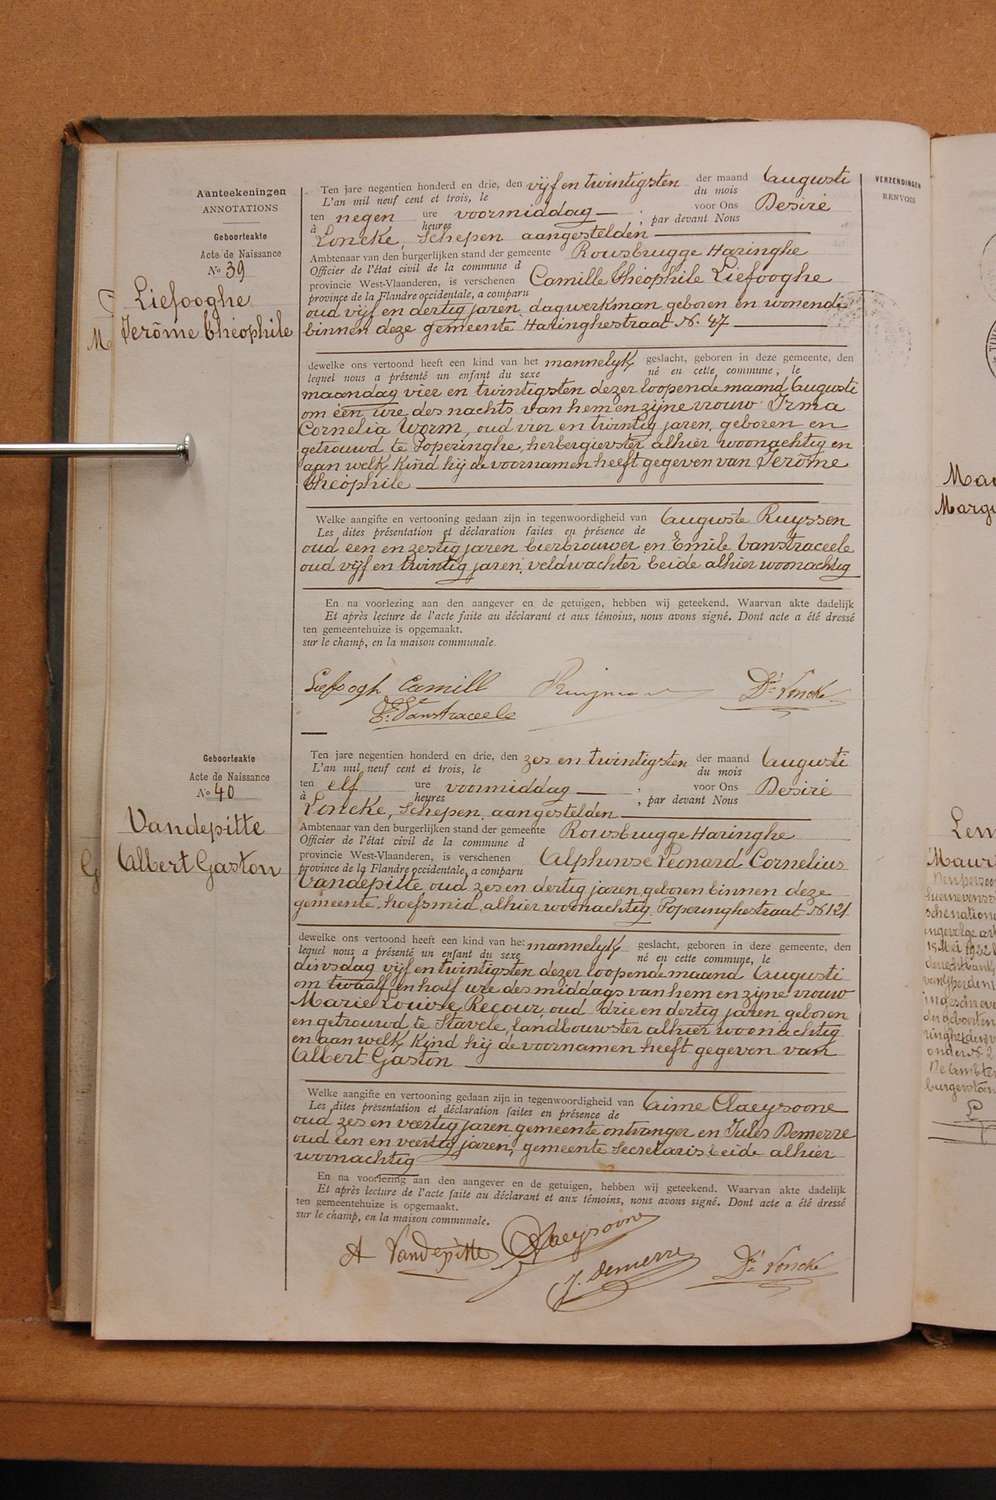 Aanteekeningen
ANNOTATIONS
VERZENDINGEN
RENVOIS
Geboorteakte
Acte de Naissance
No 39
Liefooghe
Jerôme Théophile
Ten jare negentien honderd en drie, den vijf en twintigsten der maand Augusti
L'an mil neuf cent et trois, le du mois
ten negen ure voormiddag ; voor Ons Desiré
à heures ; par devant Nous
Loncke, Schepen aangestelden
Ambtenaar van den burgerlijken stand der gemeente Rousbrugge Haringhe
Officier de l'état civil de la commune d
provincie West-Vlaanderen, is verschenen Camille Théophile Liefooghe
province de la Flandre occidentale, a comparu
oud vijf en dertig jaren, dagwerkman, geboren en wonende
binnen deze gemeente Haringhestraat No. 47
dewelke ons vertoond heeft een kind van het mannelyk geslacht, geboren in deze gemeente, den
lequel nous a présenté un enfant du sexe né en cette commune, le
maandag vier en twintigsten dezer loopende maand Augusti
om één ure des nachts van hem en zijne vrouw Irma
Cornelia Worm, oud vier en twintig jaren, geboren en
getrouwd te Poperinghe, herbergierster alhier woonachtig en
aan welk kind hij de voornamen heeft gegeven van Jerôme
Théophile
Welke aangifte en vertooning gedaan zijn in tegenwoordigheid van Auguste Ruyssen
Les dites présentation et déclaration faites en présence de
oud een en zestig jaren bierbrouwer en Emile Vanstraceele
oud vijf en twintig jaren, veldwachter beide alhier woonachtig
En na voorlezing aan den aangever en de getuigen, hebben wij geteekend. Waarvan akte dadelijk
Et après lecture de l'acte faite au déclarant et aux témoins, nous avons signé. Dont acte a été dressé
ten gemeentehuize is opgemaakt.
sur le champ, en la maison communale.
Liefoogh Camill Dé Loncke
E. Vanstraceele
Geboorteakte
Acte de Naissance
No 40
Vandepitte
Albert Gaston
Ten jare negentien honderd en drie, den zes en twintigsten der maand Augusti
L'an mil neuf cent et trois, le du mois
ten elf ure voormiddag ; voor Ons Desiré
à heures ; par devant Nous
Loncke, Schepen, aangestelden
Ambtenaar van den burgerlijken stand der gemeente Rousbrugge Haringhe
Officier de l'état civil de la commune d
provincie West-Vlaanderen, is verschenen Alphonse Léonard Cornelius
province de la Flandre occidentale, a comparu
Vandepitte, oud zes en dertig jaren, geboren binnen deze
gemeente, hoefsmid, alhier woonachtig Poperinghestraat No 121
dewelke ons vertoond heeft een kind van het mannelyk geslacht, geboren in deze gemeente, den
lequel nous a présenté un enfant du sexe né en cette commune, le
dinsdag vijf en twintigsten dezer loopende maand Augusti
om twaalf en half ure des middags van hem en zijne vrouw
Marie Louise Recour, oud drie en dertig jaren, geboren
en getrouwd te Stavele, landbouwster alhier woonachtig
en aan welk kind hij de voornamen heeft gegeven van
Albert Gaston
Welke aangifte en vertooning gedaan zijn in tegenwoordigheid van Aimé Claeysoone
Les dites présentation et déclaration faites en présence de
oud zes en veertig jaren, gemeente ontvanger en Jules Demerre
oud een en veertig jaren, gemeente Secretaris beide alhier
woonachtig
En na voorlezing aan den aangever en de getuigen, hebben wij geteekend. Waarvan akte dadelijk
Et après lecture de l'acte faite au déclarant et aux témoins, nous avons signé. Dont acte a été dressé
ten gemeentehuize is opgemaakt.
sur le champ, en la maison communale.
A Vandepitte Claeysoone
J. Demerre Dé Loncke